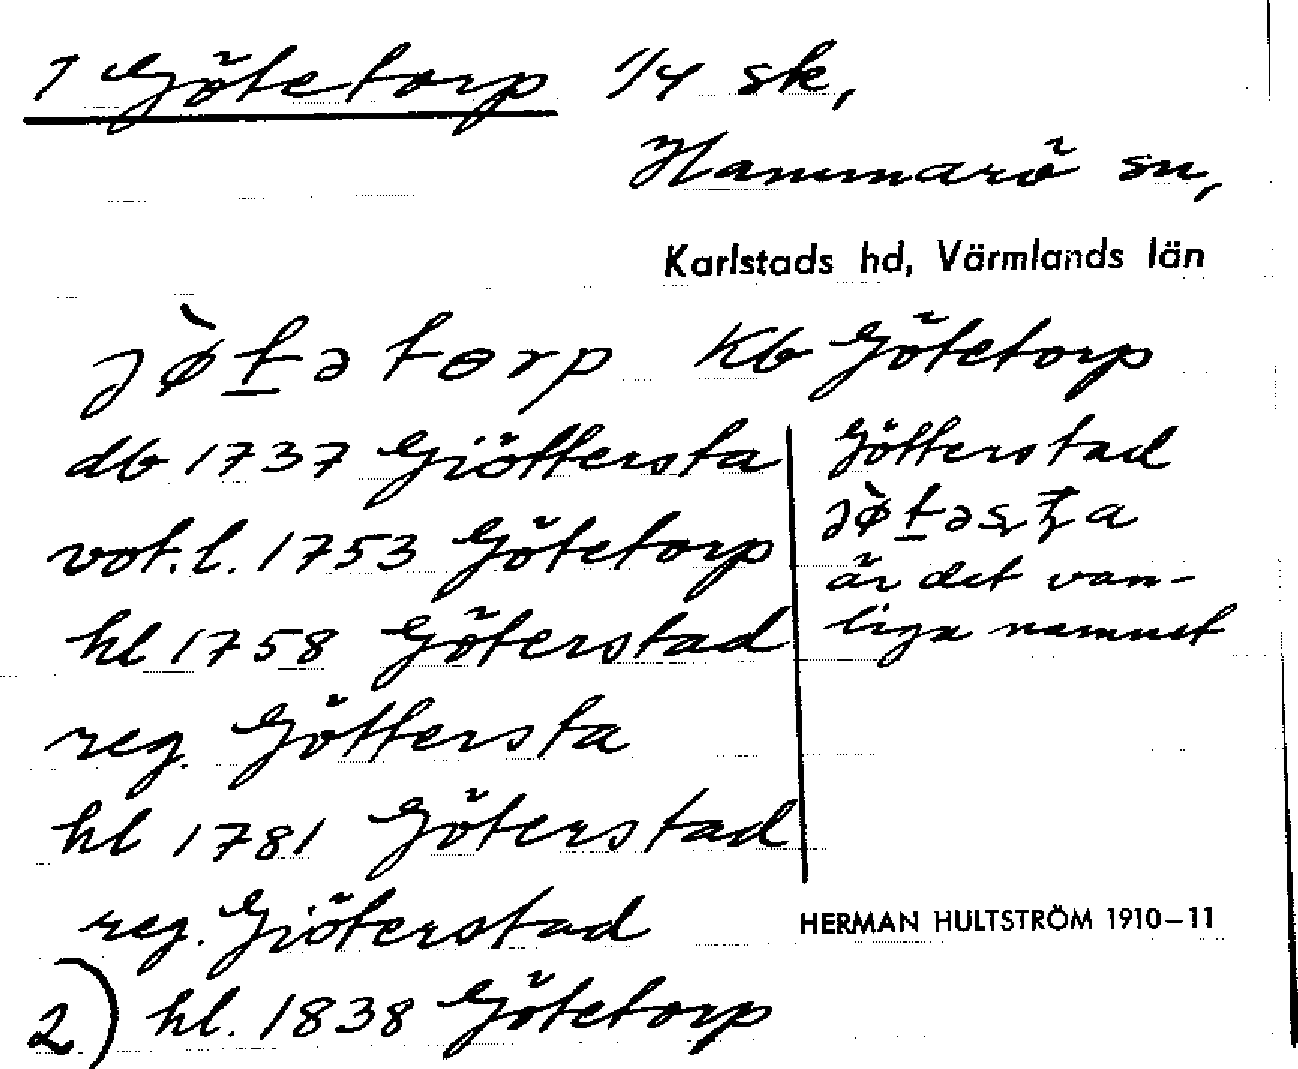 1 Götetorp 1/4 sk,
Hammarö sn,
Karlstads hd, Värmlands län
jø̀t̠ətɵrp Kb Götetorp
db 1737 Giöttersta
vot.l. 1753 Götetorp
hl 1758 Göterstad
reg. Göttersta
hl 1781 Göterstad
reg. Giöterstad
2) hl. 1838 Götetorp
Götterstad
är det van-
liga namnet
HERMAN HULTSTRÖM 1910–11